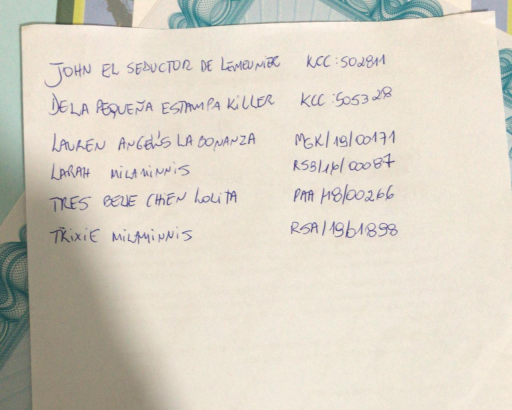 JOHN EL SEDUCTOR DE LEMEUNIER KCC:502811
DE LA PEQUEÑA ESTAMPA KILLER KCC:505328
LAUREN ANGEL'S LA BONANZA MGK/19/00171
LARAH MILAMINNIS RSB/16/00087
TRES BELLE CHIEN LOLITA PAA/18/00266
TRIXIE MILAMINNIS RSA/19/1898